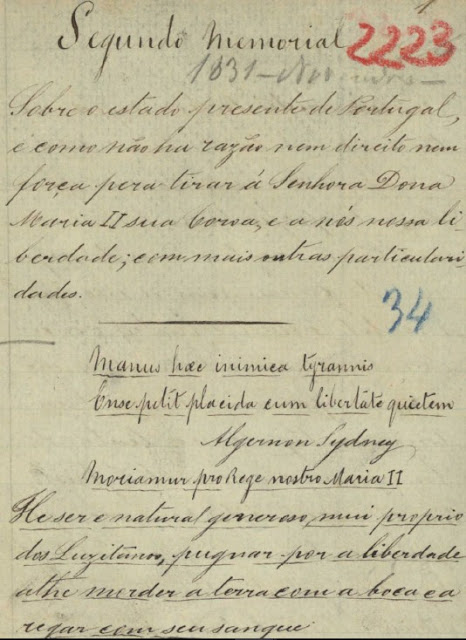 1
Segundo Memorial
2223
1831 - Novembro -
Sobre o estado presente de Portugal,
e como não ha razão nem direito nem
força pera tirar á Senhora Dona
Maria II sua Coroa, e a nós nossa li-
berdade; com mais outras particulari-
dades.
34
Manus hæc inimica tyrannis
Ense petit placida cum libertate quietem
Algernon Sydney
Moriamur pro Rege nostro Maria II
He ser e natural generoso, mui proprio
dos Luzitanos, pugnar por a liberdade
athe morder a terra com a boca e a
regar com seu sangue